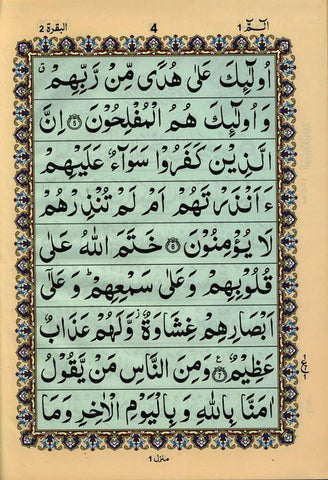 الٓمّٓ ١ 4 البقرة ٢
اُولٰٓئِكَ عَلٰى هُدًى مِّنْ رَّبِّهِمْ ۗ
وَ اُولٰٓئِكَ هُمُ الْمُفْلِحُوْنَ ﴿۵﴾ اِنَّ
الَّذِيْنَ كَفَرُوْا سَوَآءٌ عَلَيْهِمْ
ءَاَنْذَرْتَهُمْ اَمْ لَمْ تُنْذِرْهُمْ
لَا يُؤْمِنُوْنَ ﴿۶﴾ خَتَمَ اللّٰهُ عَلٰى
قُلُوْبِهِمْ وَ عَلٰى سَمْعِهِمْ ؕ وَ عَلٰٓى
اَبْصَارِهِمْ غِشَاوَةٌ ؗ وَّ لَهُمْ عَذَابٌ
عَظِيْمٌ ﴿۷﴾ وَ مِنَ النَّاسِ مَنْ يَّقُوْلُ
اٰمَنَّا بِاللّٰهِ وَ بِالْيَوْمِ الْاٰخِرِ وَ مَا
منزل ١